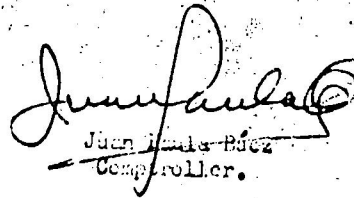 Juan Paula
Juan Paula Páez
Comptroller.